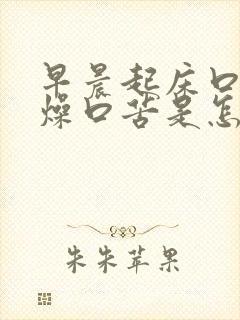 早晨起床口
燥口苦是怎
朱朱苹果